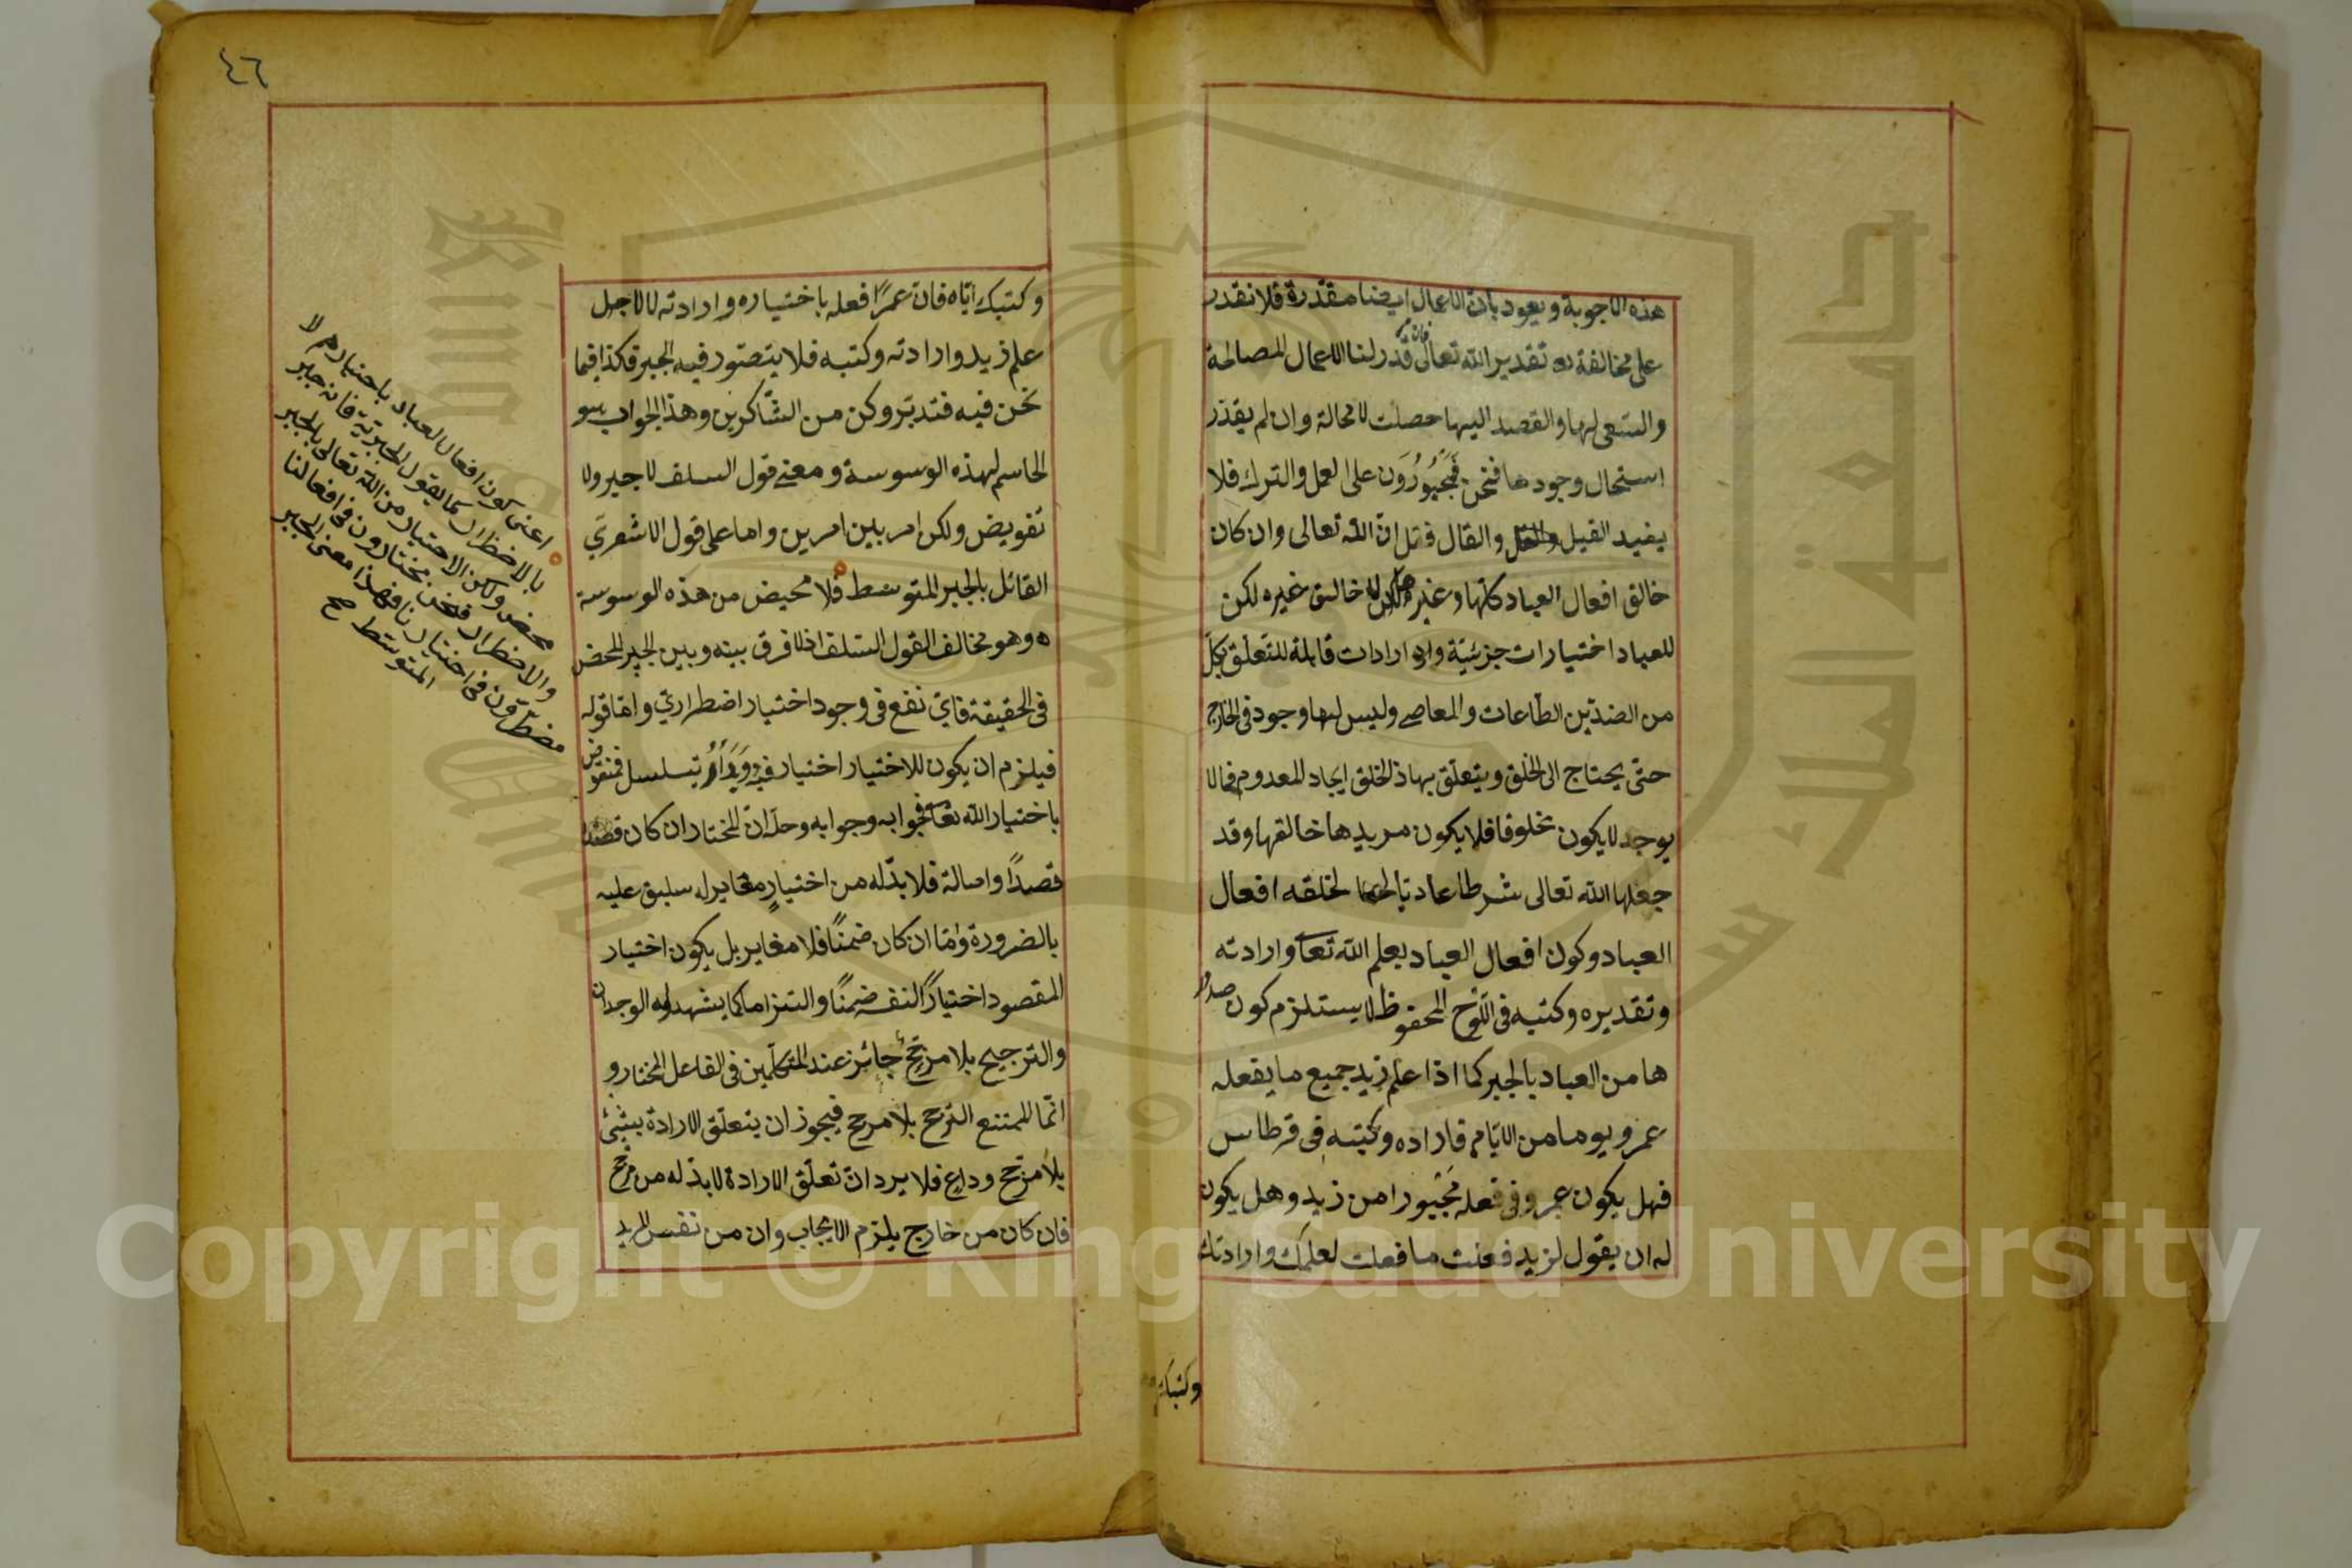 هذه الاجوبة ويعود بان الاعمال ايضا مقدرة فلا نقدر
على مخالفة تقدير الله تعالى فان قدر لنا الاعمال الصالحة
والسعى لها والقصد اليها حصلت لا محالة وان لم يقدر
استحال وجودها فنحن مجبورون على العمل والترك فلا
يفيد القيل والقال فقل ان الله تعالى وان كان
خالق افعال العباد كلها وغيرها لا خالق غيره لكن
للعباد اختيارات جزئية وارادات قابلة للتعلق بكل
من الضدين الطاعات والمعاصى وليس لها وجود فى الخارج
حتى يحتاج الى الخلق ويتعلق بها اذ الخلق ايجاد المعدوم فما لا
يوجد لا يكون مخلوقا فلا يكون مريدها خالقها وقد
جعلها الله تعالى شرطا عاديا لخلقه افعال
العباد وكون افعال العباد بعلم الله تعا وارادته
وتقديره وكتبه فى اللوح المحفوظ لا يستلزم كون صدور
ها من العباد بالجبر كما اذا علم زيد جميع ما يفعله
عمرو يوما من الايام فاراده وكتبه فى قرطاس
فهل يكون عمرو فى فعله مجبورا من زيد وهل يكون
له ان يقول لزيد فعلت ما فعلت لعلمك وارادتك
وكتبك
٤٦
وكتبك اياه فان عمرًا فعله باختياره وارادته لا لاجل
علم زيد وارادته وكتبه فلا يتصور فيه الجبر فكذا فيما
نحن فيه فتدبر وكن من الشاكرين وهذا الجواب هو
الحاسم لهذه الوسوسة ومعنى قول السلف لا جبر ولا
تفويض ولكن امر بين امرين واما على قول الاشعري
القائل بالجبر المتوسط فلا محيض من هذه الوسوسة
وهو مخالف لقول السلف اذ لا فرق بينه وبين الجبر المحض
فى الحقيقة فاي نفع فى وجود اختيار اضطراري واما قوله
فيلزم ان يكون للاختيار اختيار فيدور او يتسلسل فمنقوض
باختيار الله تعا فجوابه وجوابه وحله ان المختار ان كان قصدا
قصدًا واصالة فلا بد له من اختيارٍ مغاير له سابق عليه
بالضرورة واما ان كان ضمنًا فلا مغاير بل يكون اختيار
المقصود اختيارًا لنفسه ضمنًا والتزاما كما يشهد له الوجدان
والترجيح بلا مرجح جائز عند المتكلمين فى الفاعل المختار و
انما الممتنع الترجح بلا مرجح فيجوز ان يتعلق الارادة بشئ
بلا مرجح وداع فلا يرد ان تعلق الارادة لا بد له من مرجح
فان كان من خارج يلزم الايجاب وان من نفس المريد
اعنى كون افعال العباد باختيارهم لا
بالاضطرار كما يقول الجبرية فانه جبر
محض ولكن الاختيار من الله تعالى بالجبر
والاضطرار فنحن مختارون فى افعالنا
مضطرون فى اختيارنا فهذا معنى الجبر
المتوسط صح
Copyright © King Saud University